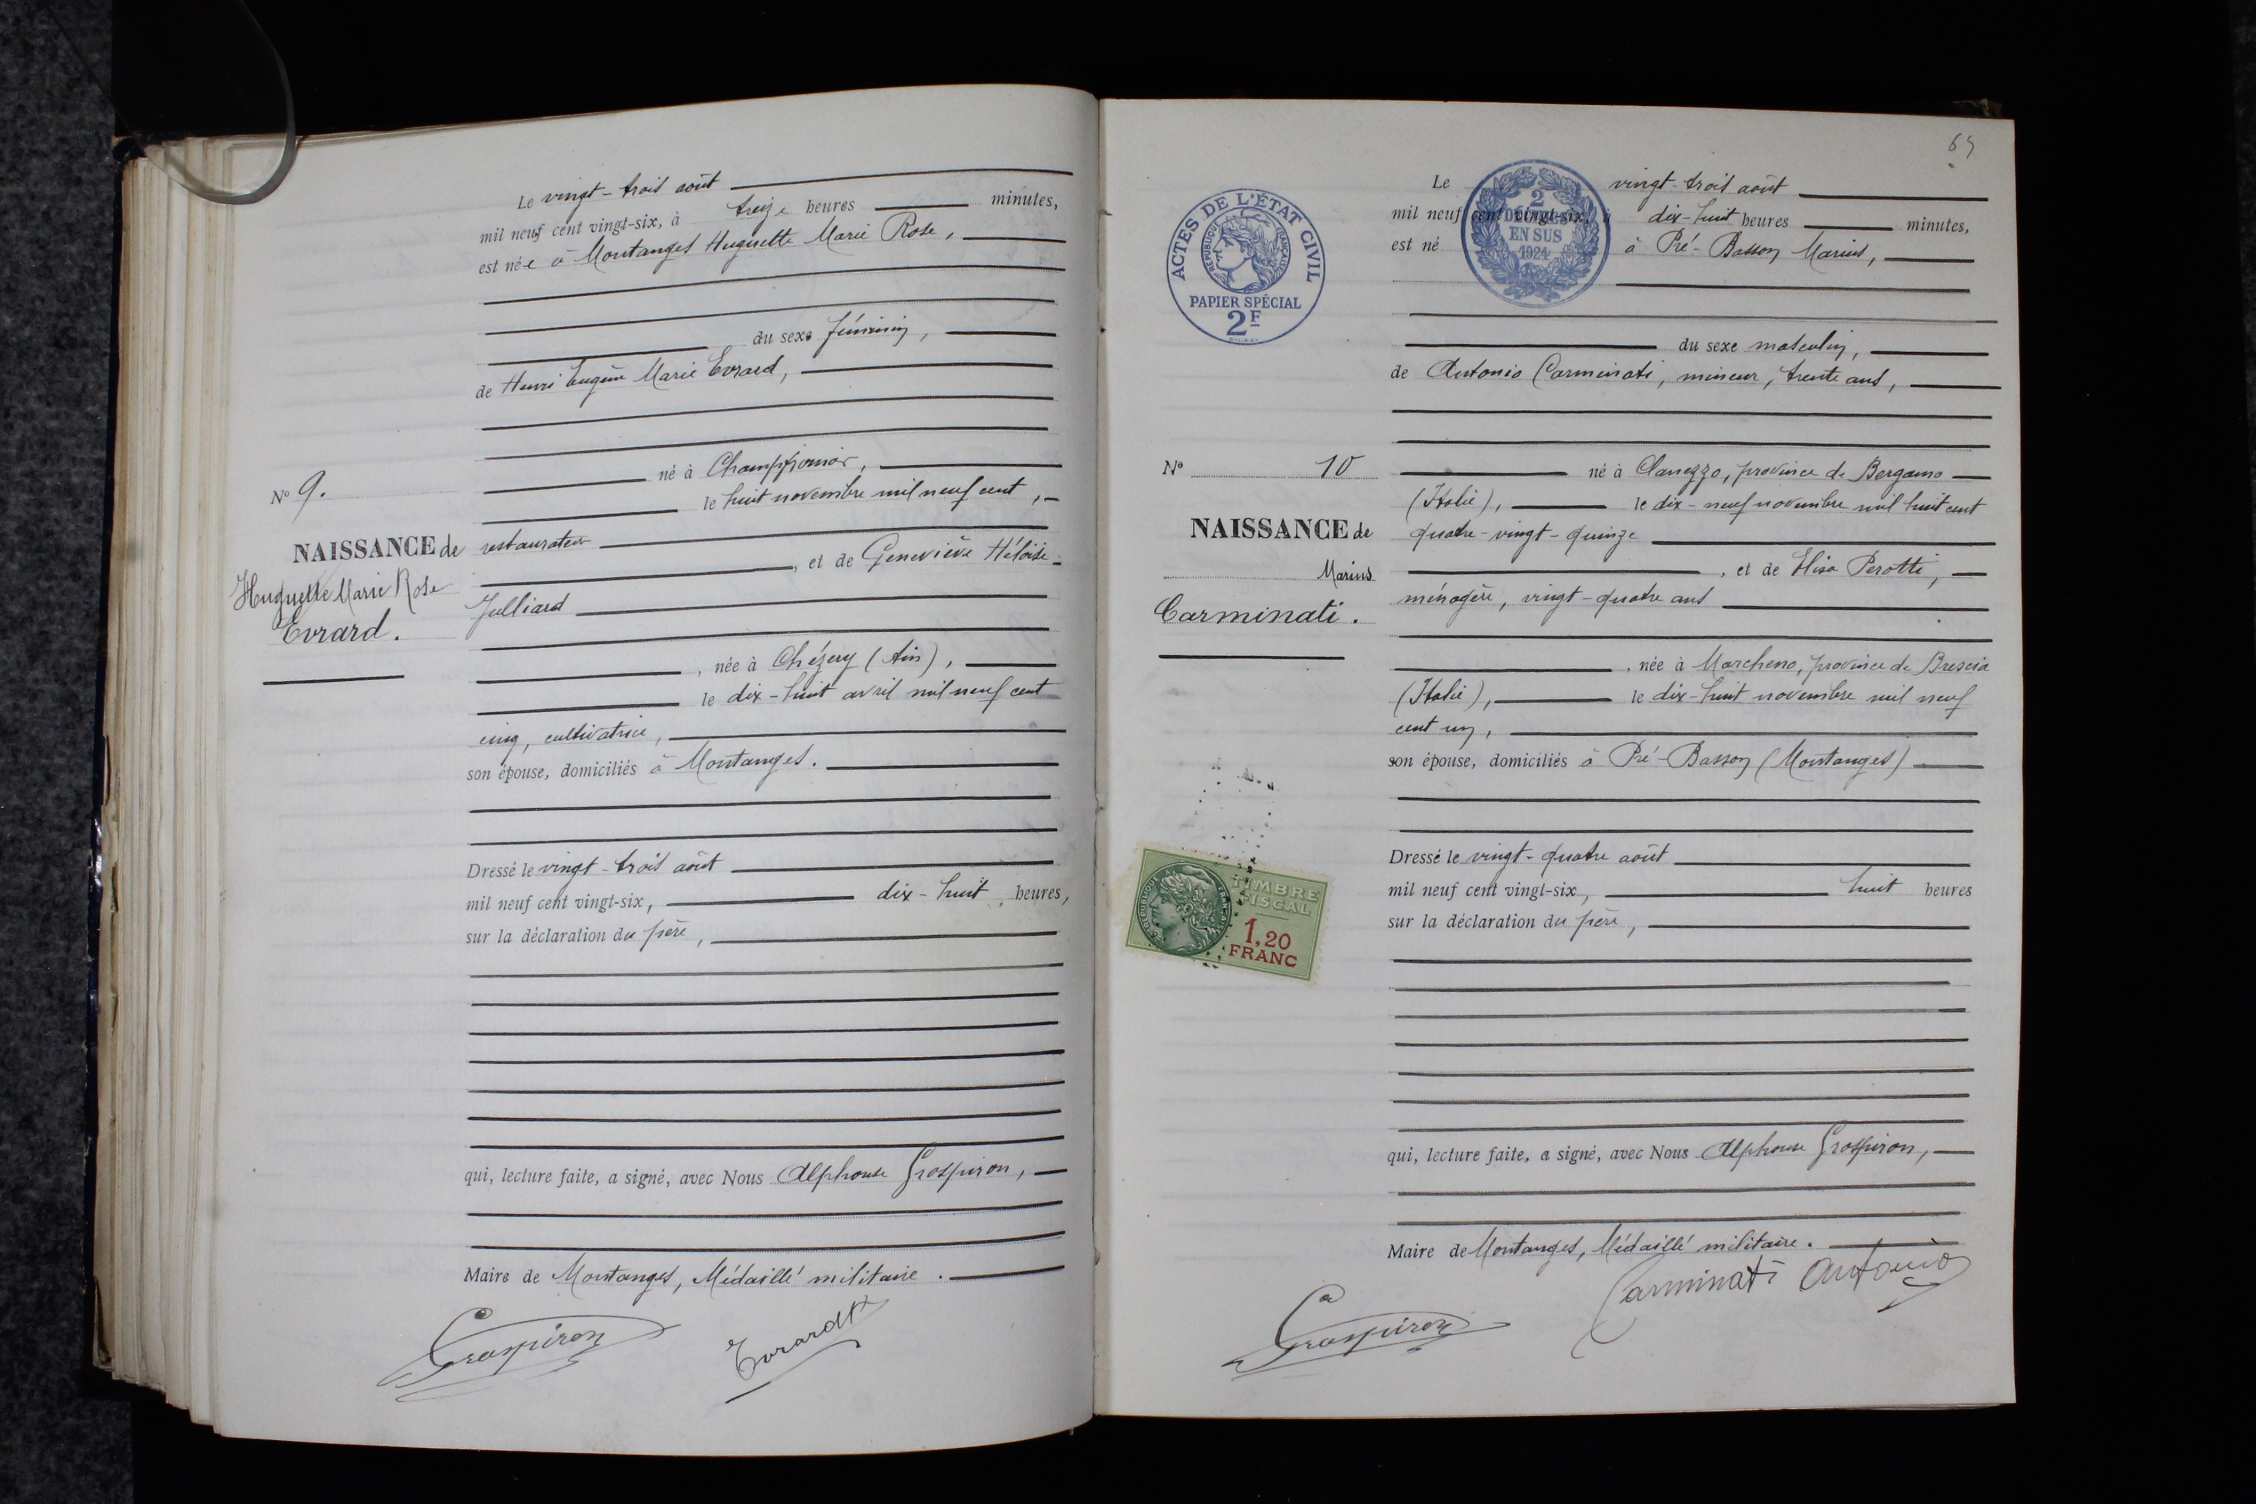 Le vingt-trois août
mil neuf cent vingt-six, à treize heures minutes,
est née à Montanges Huguette Marie Rose,
du sexe féminin,
de Henri Eugène Marie Evrard,
né à Champfromier,
N° 9. le huit novembre mil neuf cent,
NAISSANCE de restaurateur
, et de Geneviève Héloïse
Huguette Marie Rose Julliard
Evrard.
, née à Chézery (Ain),
le dix-huit avril mil neuf cent
cinq, cultivatrice,
son épouse, domiciliés à Montanges.
Dressé le vingt-trois août
mil neuf cent vingt-six, dix-huit heures,
sur la déclaration du père,
qui, lecture faite, a signé, avec Nous Alphonse Grospiron,
Maire de Montanges, Médaillé militaire.
Grospiron Evrard
ACTES DE L'ÉTAT CIVIL
RÉPUBLIQUE FRANÇAISE
PAPIER SPÉCIAL
2F
2
DÉCIMES
EN SUS
1924
Le vingt-trois août
mil neuf cent vingt-six, à dix-huit heures minutes,
est né à Pré-Basson Marius,
du sexe masculin,
de Antonio Carminati, mineur, trente ans,
N° 10 né à Clanezzo, province de Bergamo
(Italie), le dix-neuf novembre mil huit cent
NAISSANCE de quatre-vingt-quinze
Marius , et de Elisa Perotti,
Carminati. ménagère, vingt-quatre ans
, née à Marcheno, province de Brescia
(Italie), le dix-huit novembre mil neuf
cent un,
son épouse, domiciliés à Pré-Basson (Montanges)
Dressé le vingt-quatre août
mil neuf cent vingt-six, huit heures
sur la déclaration du père,
TIMBRE
FISCAL
1,20
FRANC
qui, lecture faite, a signé, avec Nous Alphonse Grospiron,
Maire de Montanges, Médaillé militaire.
Grospiron Carminati Antonio